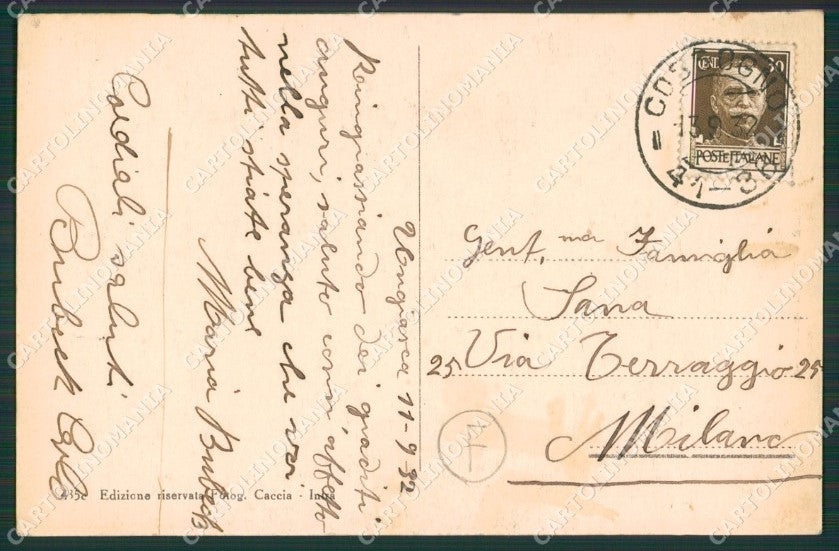 Ungiasca 11-9-32
Ringraziando dei graditi
auguri, saluto con affetto
nella speranza che voi
tutti state bene
Maria Bubeck
Cordiali saluti
Bubeck Carlo
435c Edizione riservata Fotog. Caccia - Intra
CENT. 30
POSTE ITALIANE
COSSOGNO
13.9.32
41-38
Gent.ma Famiglia
Sana
25 Via Terraggio 25
Milano
+
CARTOLINOMANIA